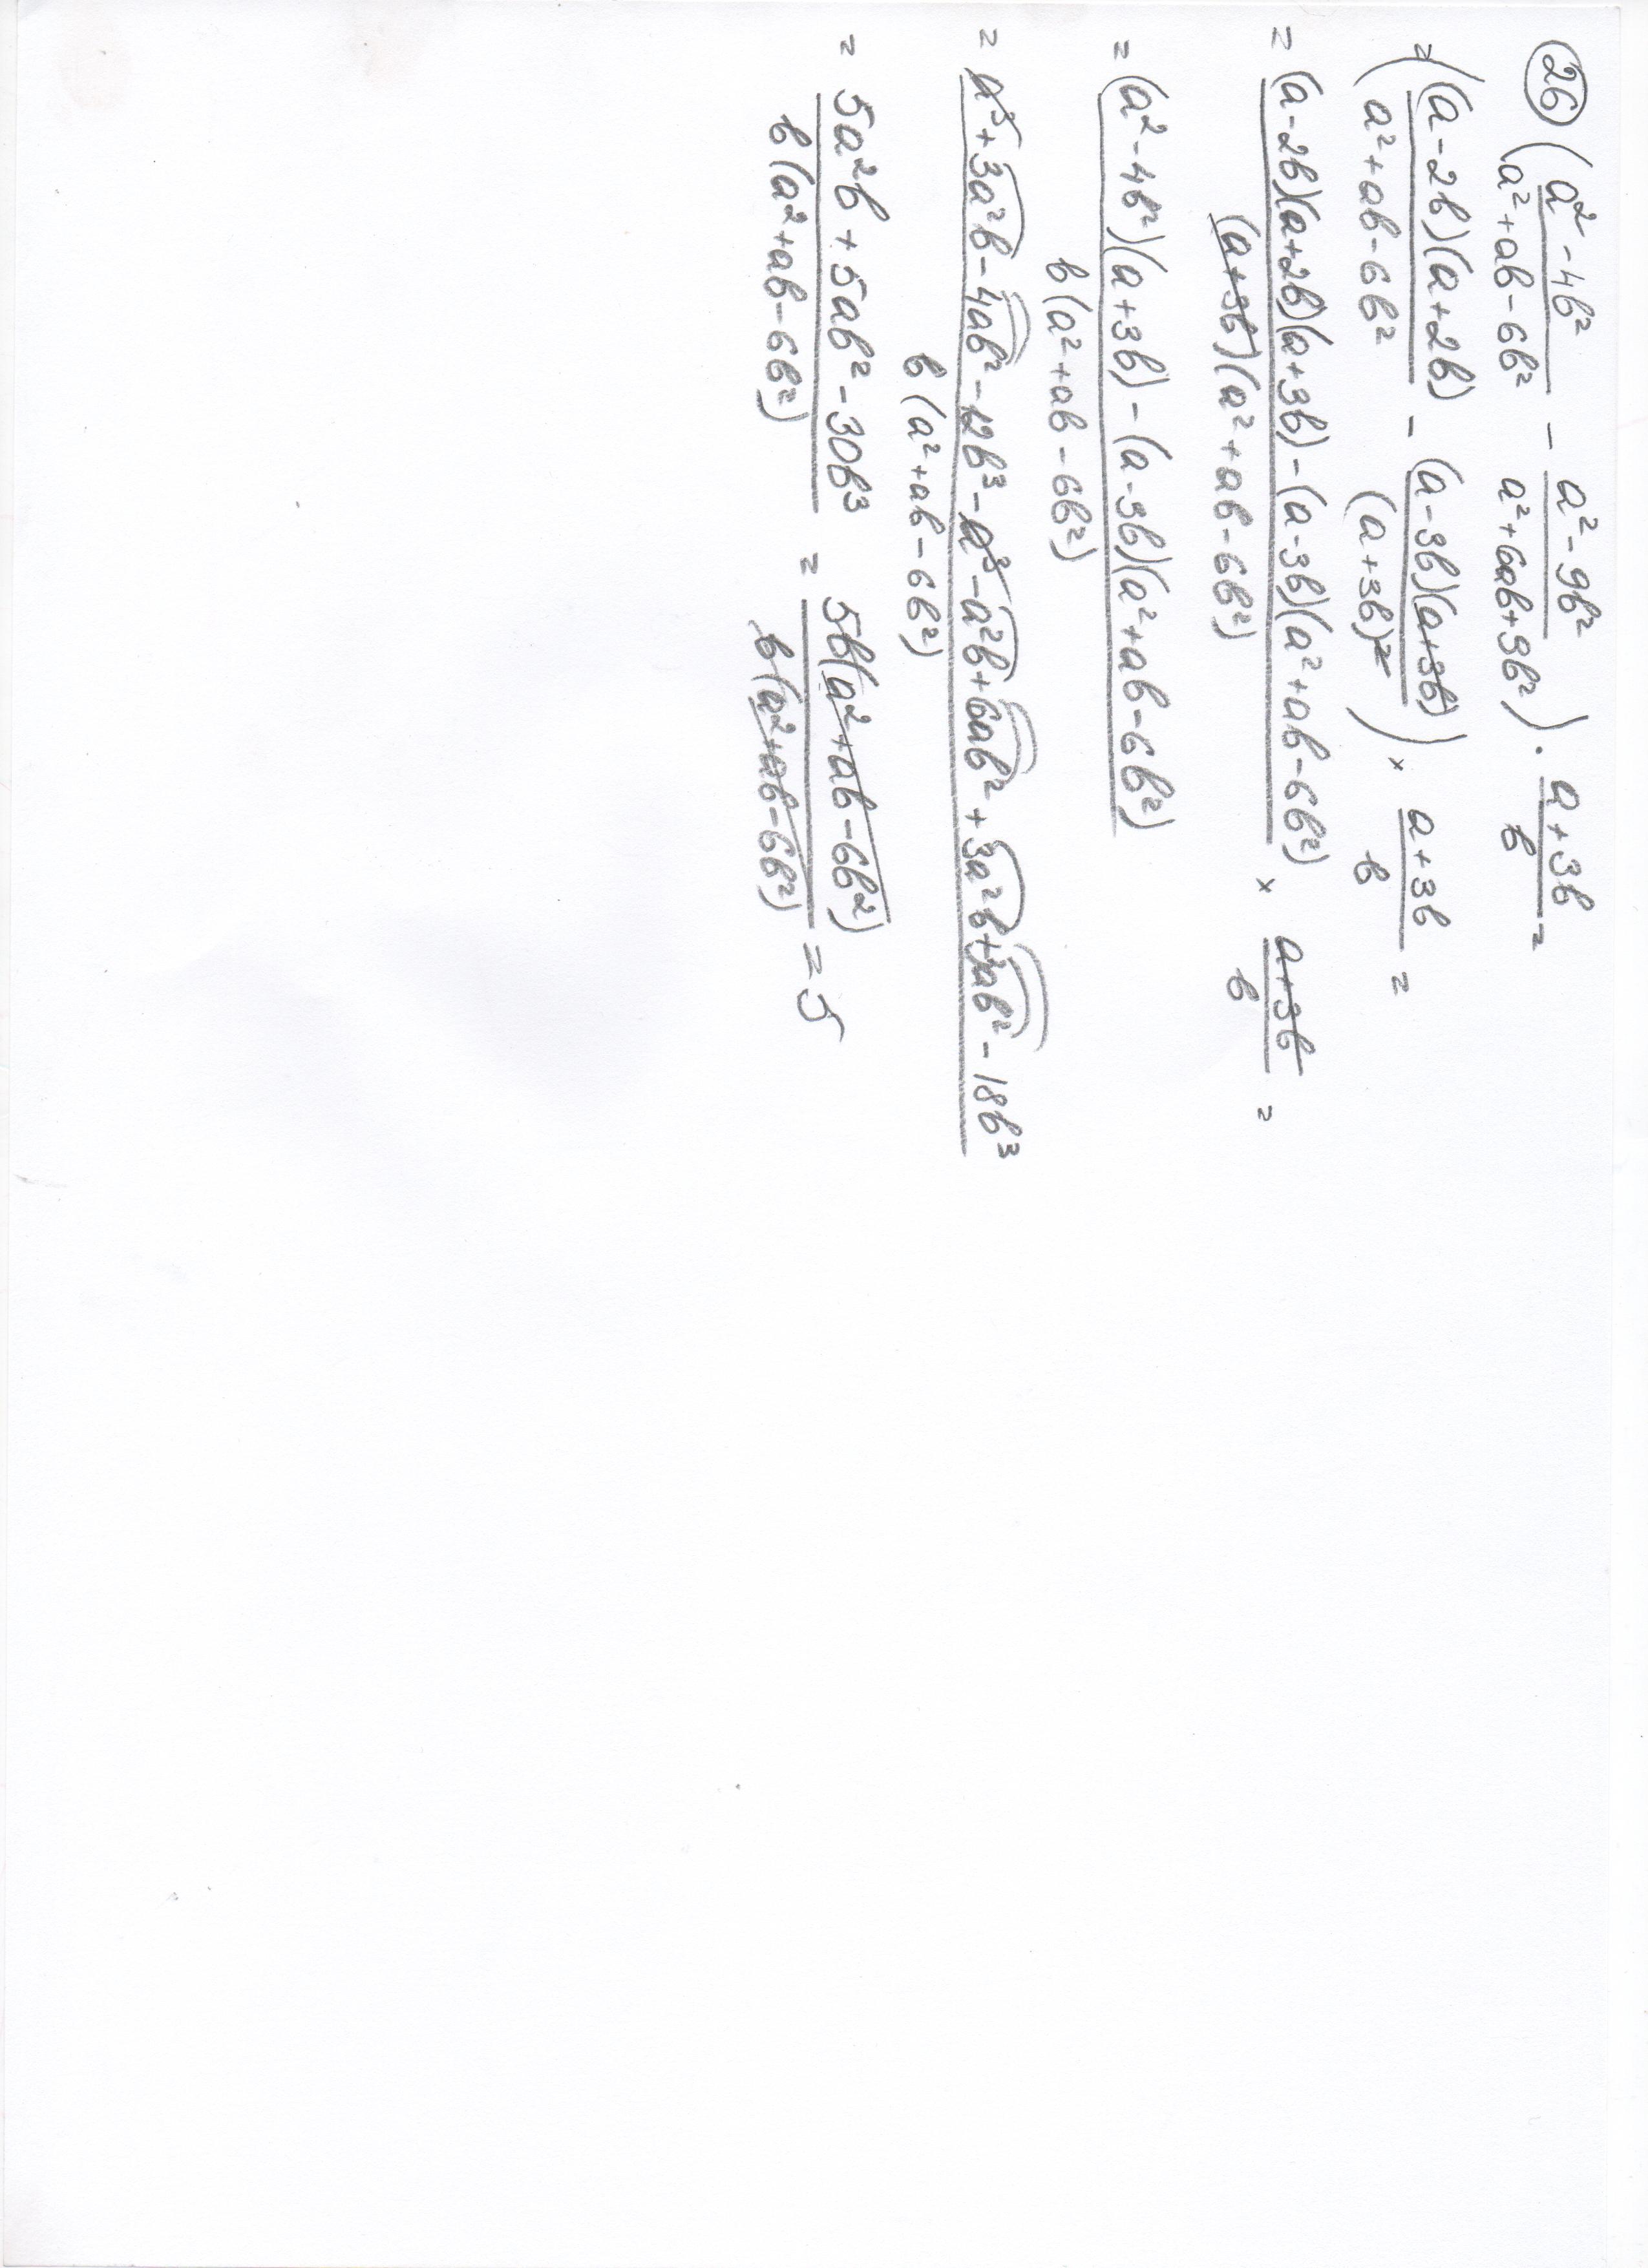 26 ( (a² - 4b²)/(a² + ab - 6b²) - (a² - 9b²)/(a² + 6ab + 9b²) ) · (a + 3b)/b =
= ( ((a - 2b)(a + 2b))/(a² + ab - 6b²) - ((a - 3b)(a + 3b))/((a + 3b)²) ) × (a + 3b)/b =
= ((a - 2b)(a + 2b)(a + 3b) - (a - 3b)(a² + ab - 6b²))/((a + 3b)(a² + ab - 6b²)) × (a + 3b)/b =
= ((a² - 4b²)(a + 3b) - (a - 3b)(a² + ab - 6b²))/(b(a² + ab - 6b²))
= (a³ + 3a²b - 4ab² - 12b³ - a³ - a²b + 6ab² + 3a²b + 3ab² - 18b³)/(b(a² + ab - 6b²))
= (5a²b + 5ab² - 30b³)/(b(a² + ab - 6b²)) = (5b(a² + ab - 6b²))/(b(a² + ab - 6b²)) = 5